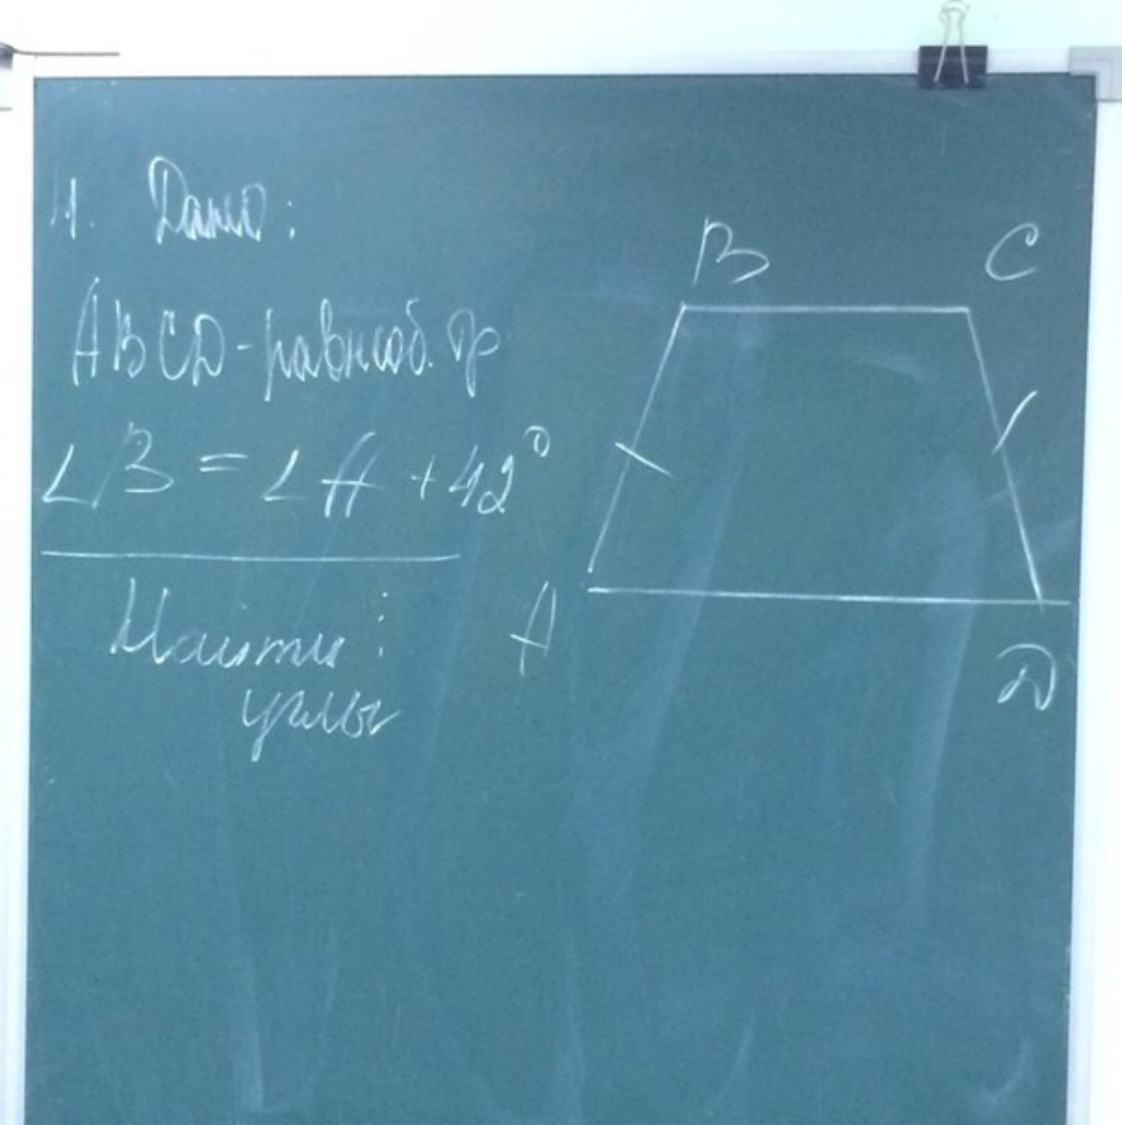 1. Дано:
ABCD - равноб. тр
∠B = ∠A + 42°
Найти:
углы
B
C
A
D